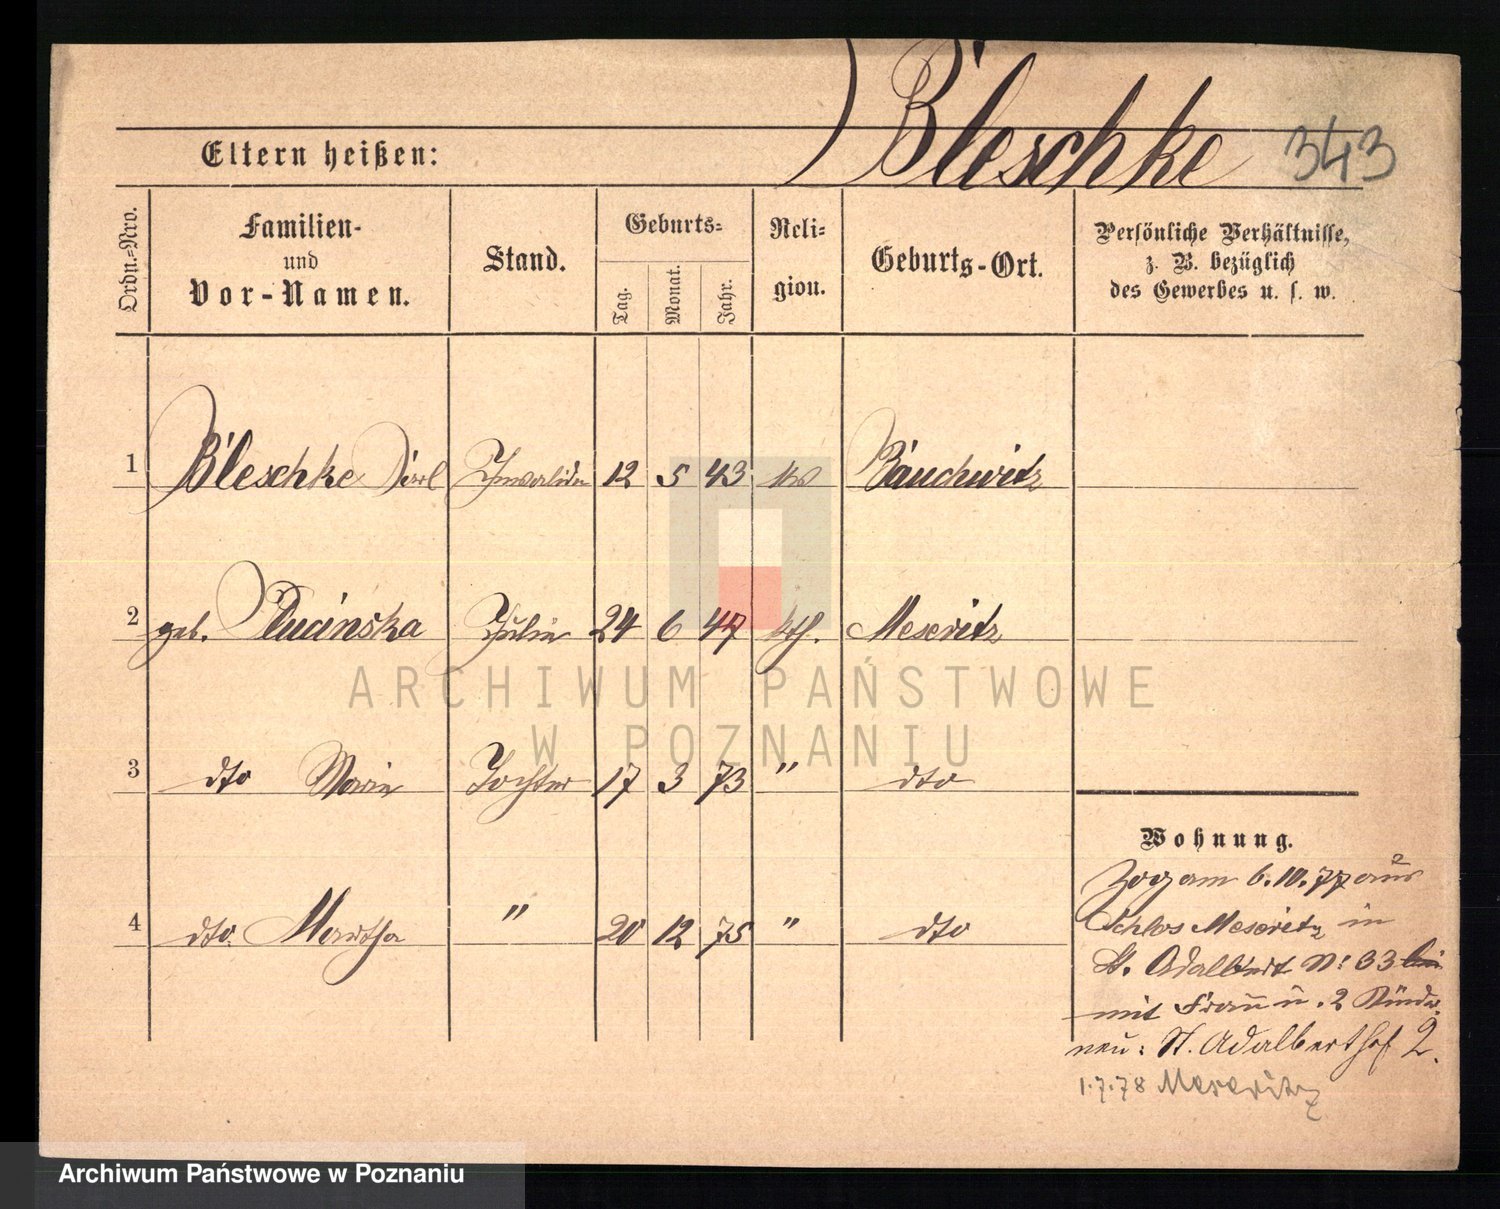 Bleschke 343
Eltern heißen:
Ordn.-Nro.
Familien-
und
Vor-Namen.
Stand.
Geburts-
Tag.
Monat.
Jahr.
Reli-
gion.
Geburts-Ort.
Persönliche Verhältnisse,
z. B. bezüglich
des Gewerbes u. s. w.
1 Bleschke Carl Invalide 12 5 43 Bauchwitz
2 geb. Plucinska Julie 24 6 47 kth. Meseritz
3 dto Marie Tochter 17 3 73 " dto
4 dto. Martha " 20 12 75 " dto
Wohnung.
Zog am 6.10.77 aus
Schlos Meseritz in
St. Adalbert N: 33
mit Frau u. 2 Kinder.
neu: St. Adalberthof 2.
1.7.78 Meseritz
ARCHIWUM PAŃSTWOWE
W POZNANIU
Archiwum Państwowe w Poznaniu